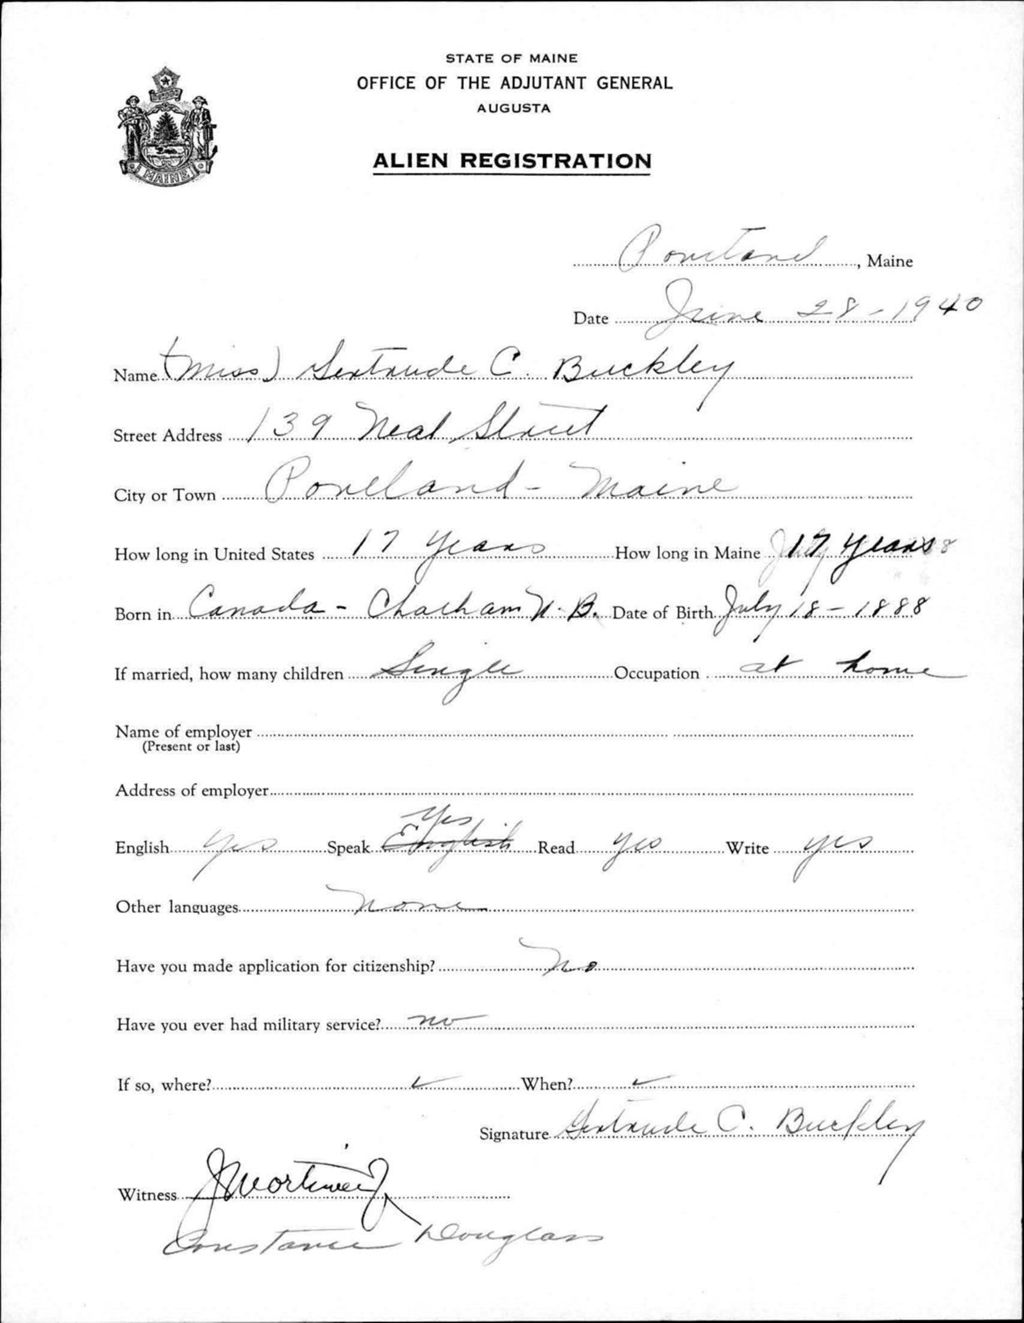 STATE OF MAINE
OFFICE OF THE ADJUTANT GENERAL
AUGUSTA
MAINE
ALIEN REGISTRATION
Portland, Maine
Date June 28-1940
Name (Miss) Gertrude C. Buckley
Street Address 139 Neal Street
City or Town Portland - Maine
How long in United States 17 Years How long in Maine 17 years
Born in Canada - Chatham N.B. Date of Birth July 18-1888
If married, how many children Single Occupation at home
Name of employer
(Present or last)
Address of employer
Yes
English yes Speak English Read yes Write yes
Other languages None
Have you made application for citizenship? No
Have you ever had military service? no
If so, where? ✓ When? ✓
Signature Gertrude C. Buckley
Witness
Constance Douglass